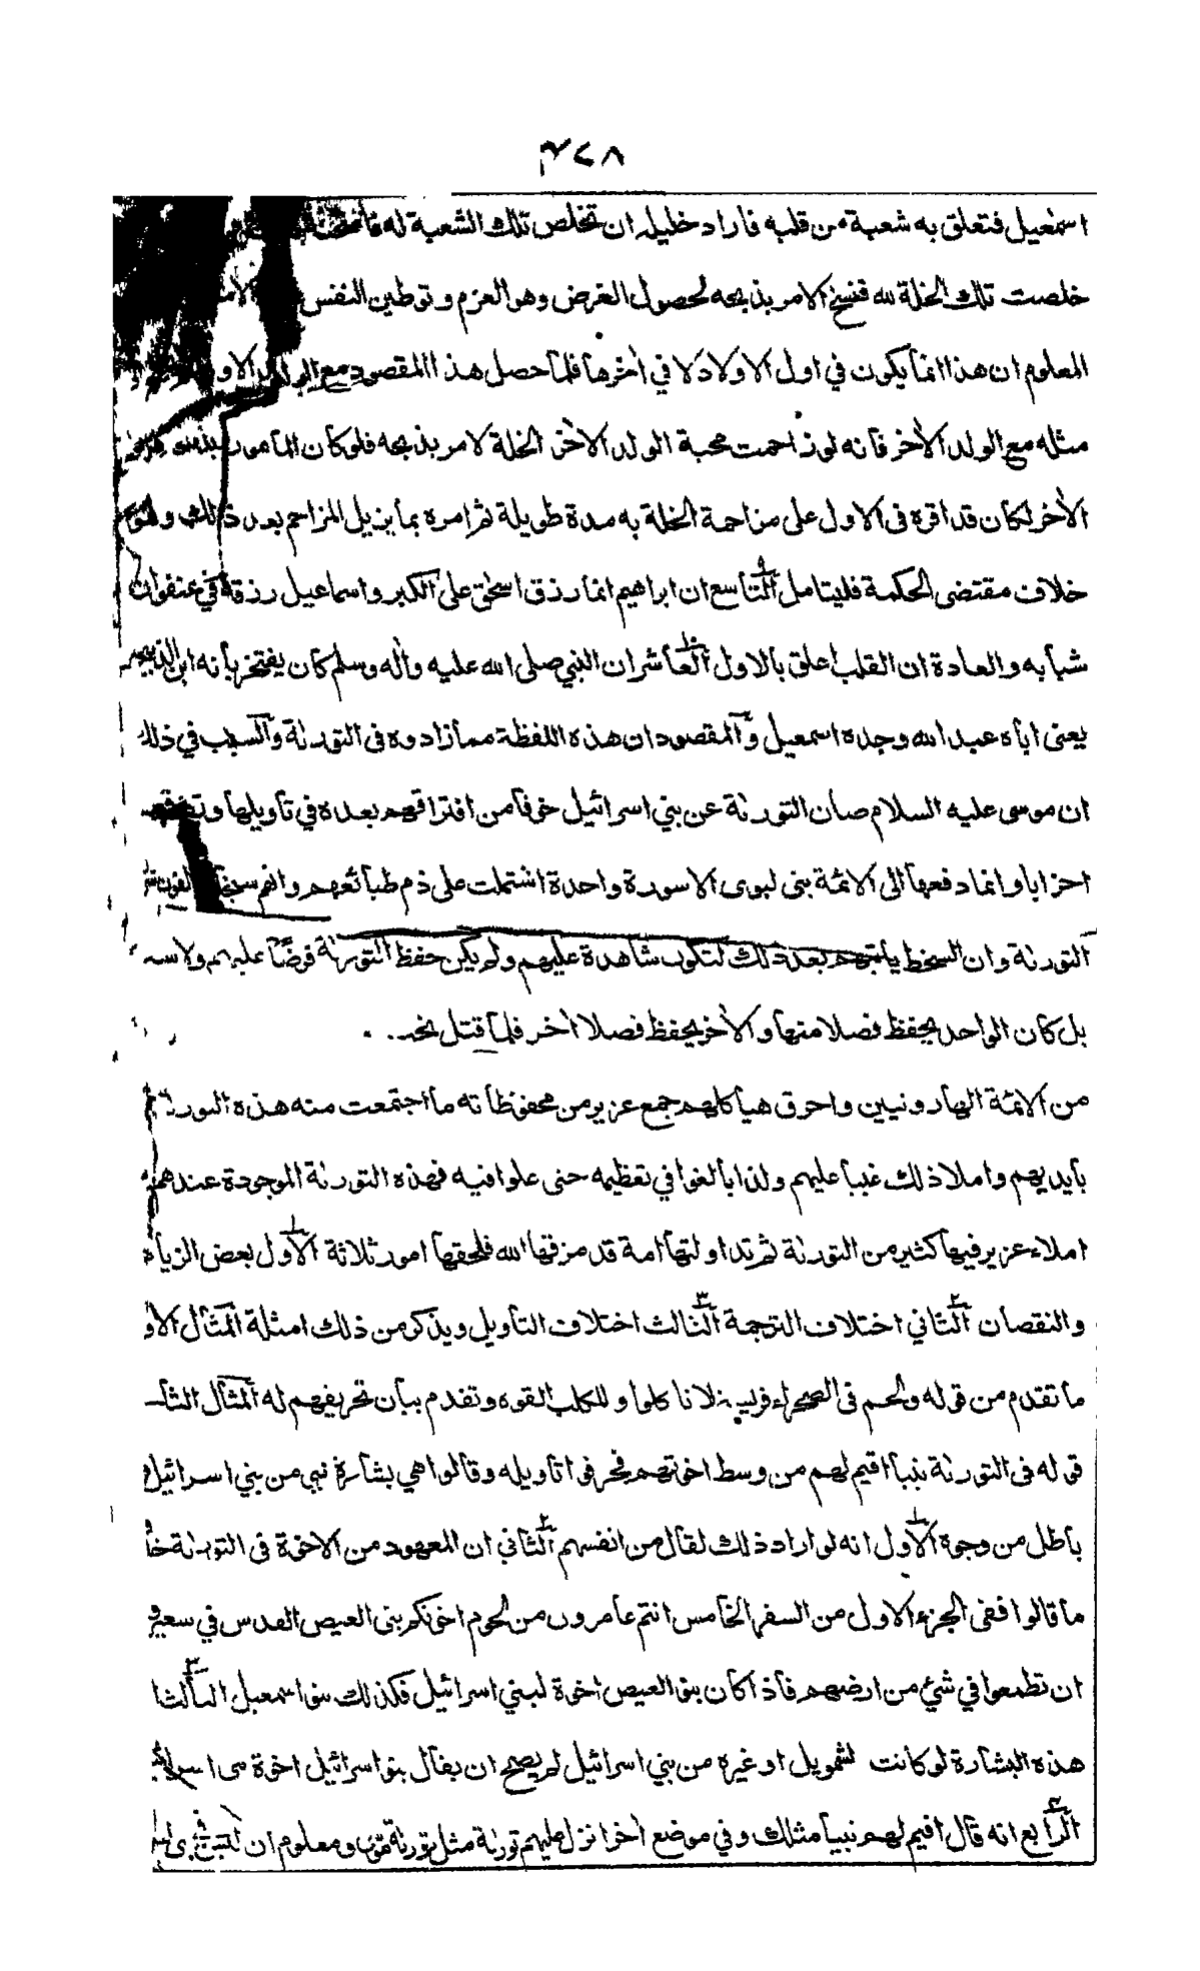 ٣٤٨
اسمعيل فتعلق به شعبة من قلبه فاراد خليله ان تخلص تلك الشعبة له
خلصت تلك الخلة لله فنسخ الامر بذبحه لحصول الغرض وهو العزم وتوطين النفس
المعلوم ان هذا انما يكون في اول الاولاد لا في اخرها فلما حصل هذا المقصود مع الولد الاول
مثله مع الولد الاخر فانه لو زاحمت محبة الولد الاخر الخلة لامر بذبحه فلو كان المامور بذبحه
الاخر لكان قد اقره في الاول على مزاحمة الخلة به مدة طويلة ثم امره بما يزيل المزاحم بعد ذلك وهو
خلاف مقتضى الحكمة فليتامل التاسع ان ابراهيم انما رزق اسحق على الكبر واسماعيل رزقه في عنفوان
شبابه والعادة ان القلب اعلق بالاول العاشر ان النبي صلى الله عليه واله وسلم كان يفتخر بانه ابن الذبيحين
يعنى اباه عبد الله وجده اسمعيل والمقصود ان هذه اللفظة مما زادوه في التورىة والسبب في ذلك
ان موسى عليه السلام صان التورىة عن بني اسرائيل خوفا من افتراقهم بعده في تأويلها
احزابا وانما دفعها الى الائمة بني ليوى الا سورة واحدة اشتملت على ذم طبائعهم وانهم
التورىة وان السخط ياتيهم بعد ذلك لتكون شاهدة عليهم ولم يكن حفظ التورىة فرضًا عليهم ولا سنة
بل كان الواحد يحفظ فصلا منها والاخر يحفظ فصلا اخر فلما قتل بخت
من الائمة الهارونيين واحرق هياكلهم جمع عزير من محفوظاته ما اجتمعت منه هذه التورىة
بايديهم واملا ذلك غيبا عليهم ولذا بالغوا في تعظيمه حتى غلوا فيه فهذه التورىة الموجودة عندهم
املاء عزير فيها كثير من التورىة ثم تداولتها امة قد مزقها الله فلحقها امور ثلاثة الاول بعض الزيادة
والنقصان الثاني اختلاف الترجمة الثالث اختلاف التأويل ويذكر من ذلك امثلة المثال الاول
ما تقدم من قوله ولحم في الصحراء فريسة لا تاكلوا وللكلب القوه وتقدم بيان تحريفهم له المثال الثا
قوله في التورىة نبيا اقيم لهم من وسط اخوتهم فحرفوا تأويله وقالوا هي بشارة نبي من بني اسرائيل
باطل من وجوه الاول انه لو اراد ذلك لقال من انفسهم الثاني ان المعهود من الاخوة في التورىة خلا
ما قالوا ففي الجزء الاول من السفر الخامس انتم عامرون من لحوم اخوتكم بني العيص القدس في سعير
ان تطمعوا في شئ من ارضهم فاذا كان بنو العيص اخوة لبني اسرائيل فكذلك بنو اسمعيل الثالث
هذه البشارة لو كانت لشمويل او غيره من بني اسرائيل لم يصح ان يقال بنو اسرائيل اخوة بنى اسرائيل
الرابع انه قال اقيم لهم نبيا مثلك وفي موضع اخر انزل عليهم تورىة مثل تورىة موسى ومعلوم ان